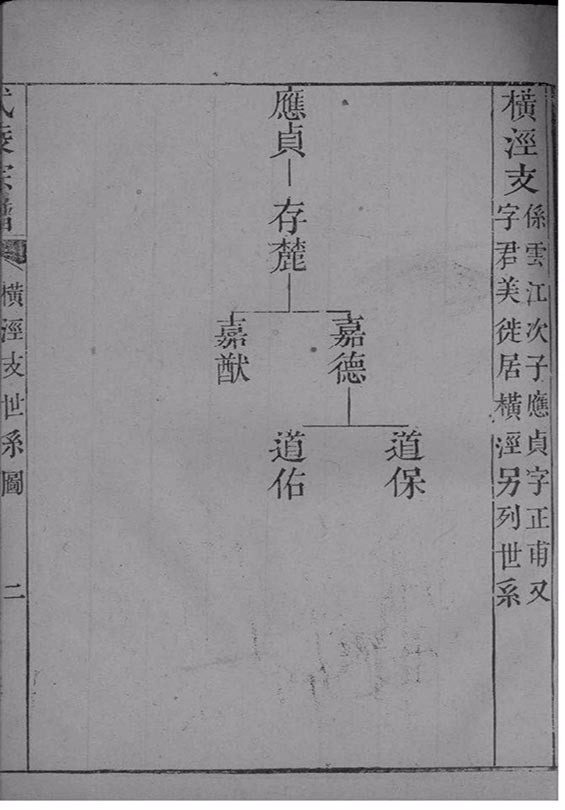 橫涇支
係雲江次子應貞字正甫又
字君美徙居橫涇另列世系
應貞
存蔍
嘉德
嘉猷
道保
道佑
宗譜
橫涇支世系圖
二